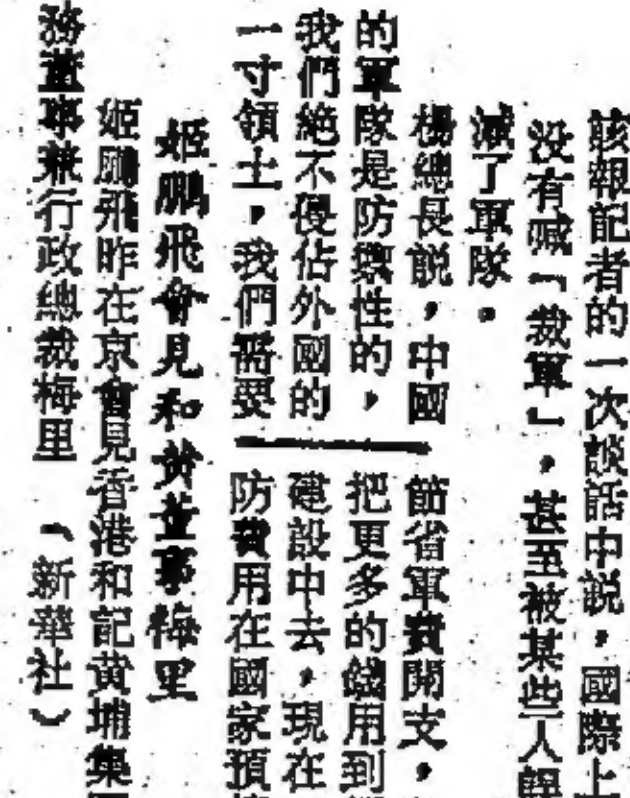 該報記者的一次談話中説，國際上
没有喊「裁軍」，甚至被某些人
減了軍隊。
楊總長説，中國
的軍隊是防禦性的，
我們絶不侵佔外國的
一寸領土，我們需要
節省軍費開支，
把更多的錢用到
建設中去，現在
防費用在國家預
姬鵬飛會見和黄董事梅里
姬鵬飛昨在京會見香港和記黄埔集
務董事兼行政總裁梅里 （新華社）